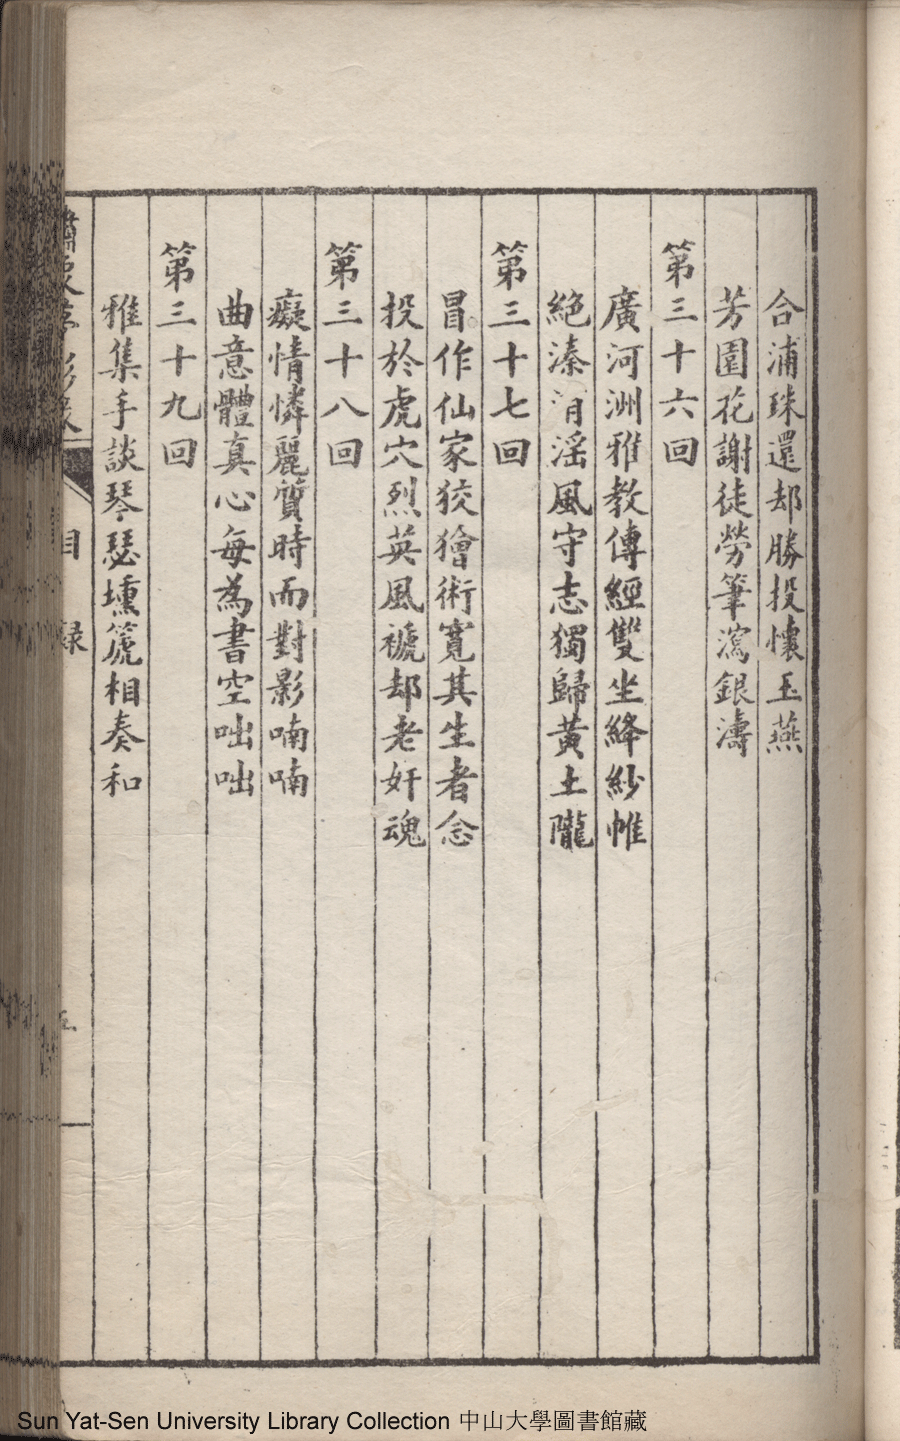 合浦珠還却勝投懷玉燕
芳園花謝徒勞筆瀉銀濤
第三十六回
廣河洲雅教傳經雙坐絳紗帷
絕溱洧滛風守志獨歸黃土隴
第三十七回
冒作仙家狡獪術寛其生者念
投於虎穴烈英風褫却老奸魂
第三十八回
癡情憐麗質時而對影喃喃
曲意體真心每為書空咄咄
第三十九回
雅集手談琴瑟壎箎相奏和
目錄
五
Sun Yat-Sen University Library Collection 中山大學圖書館藏